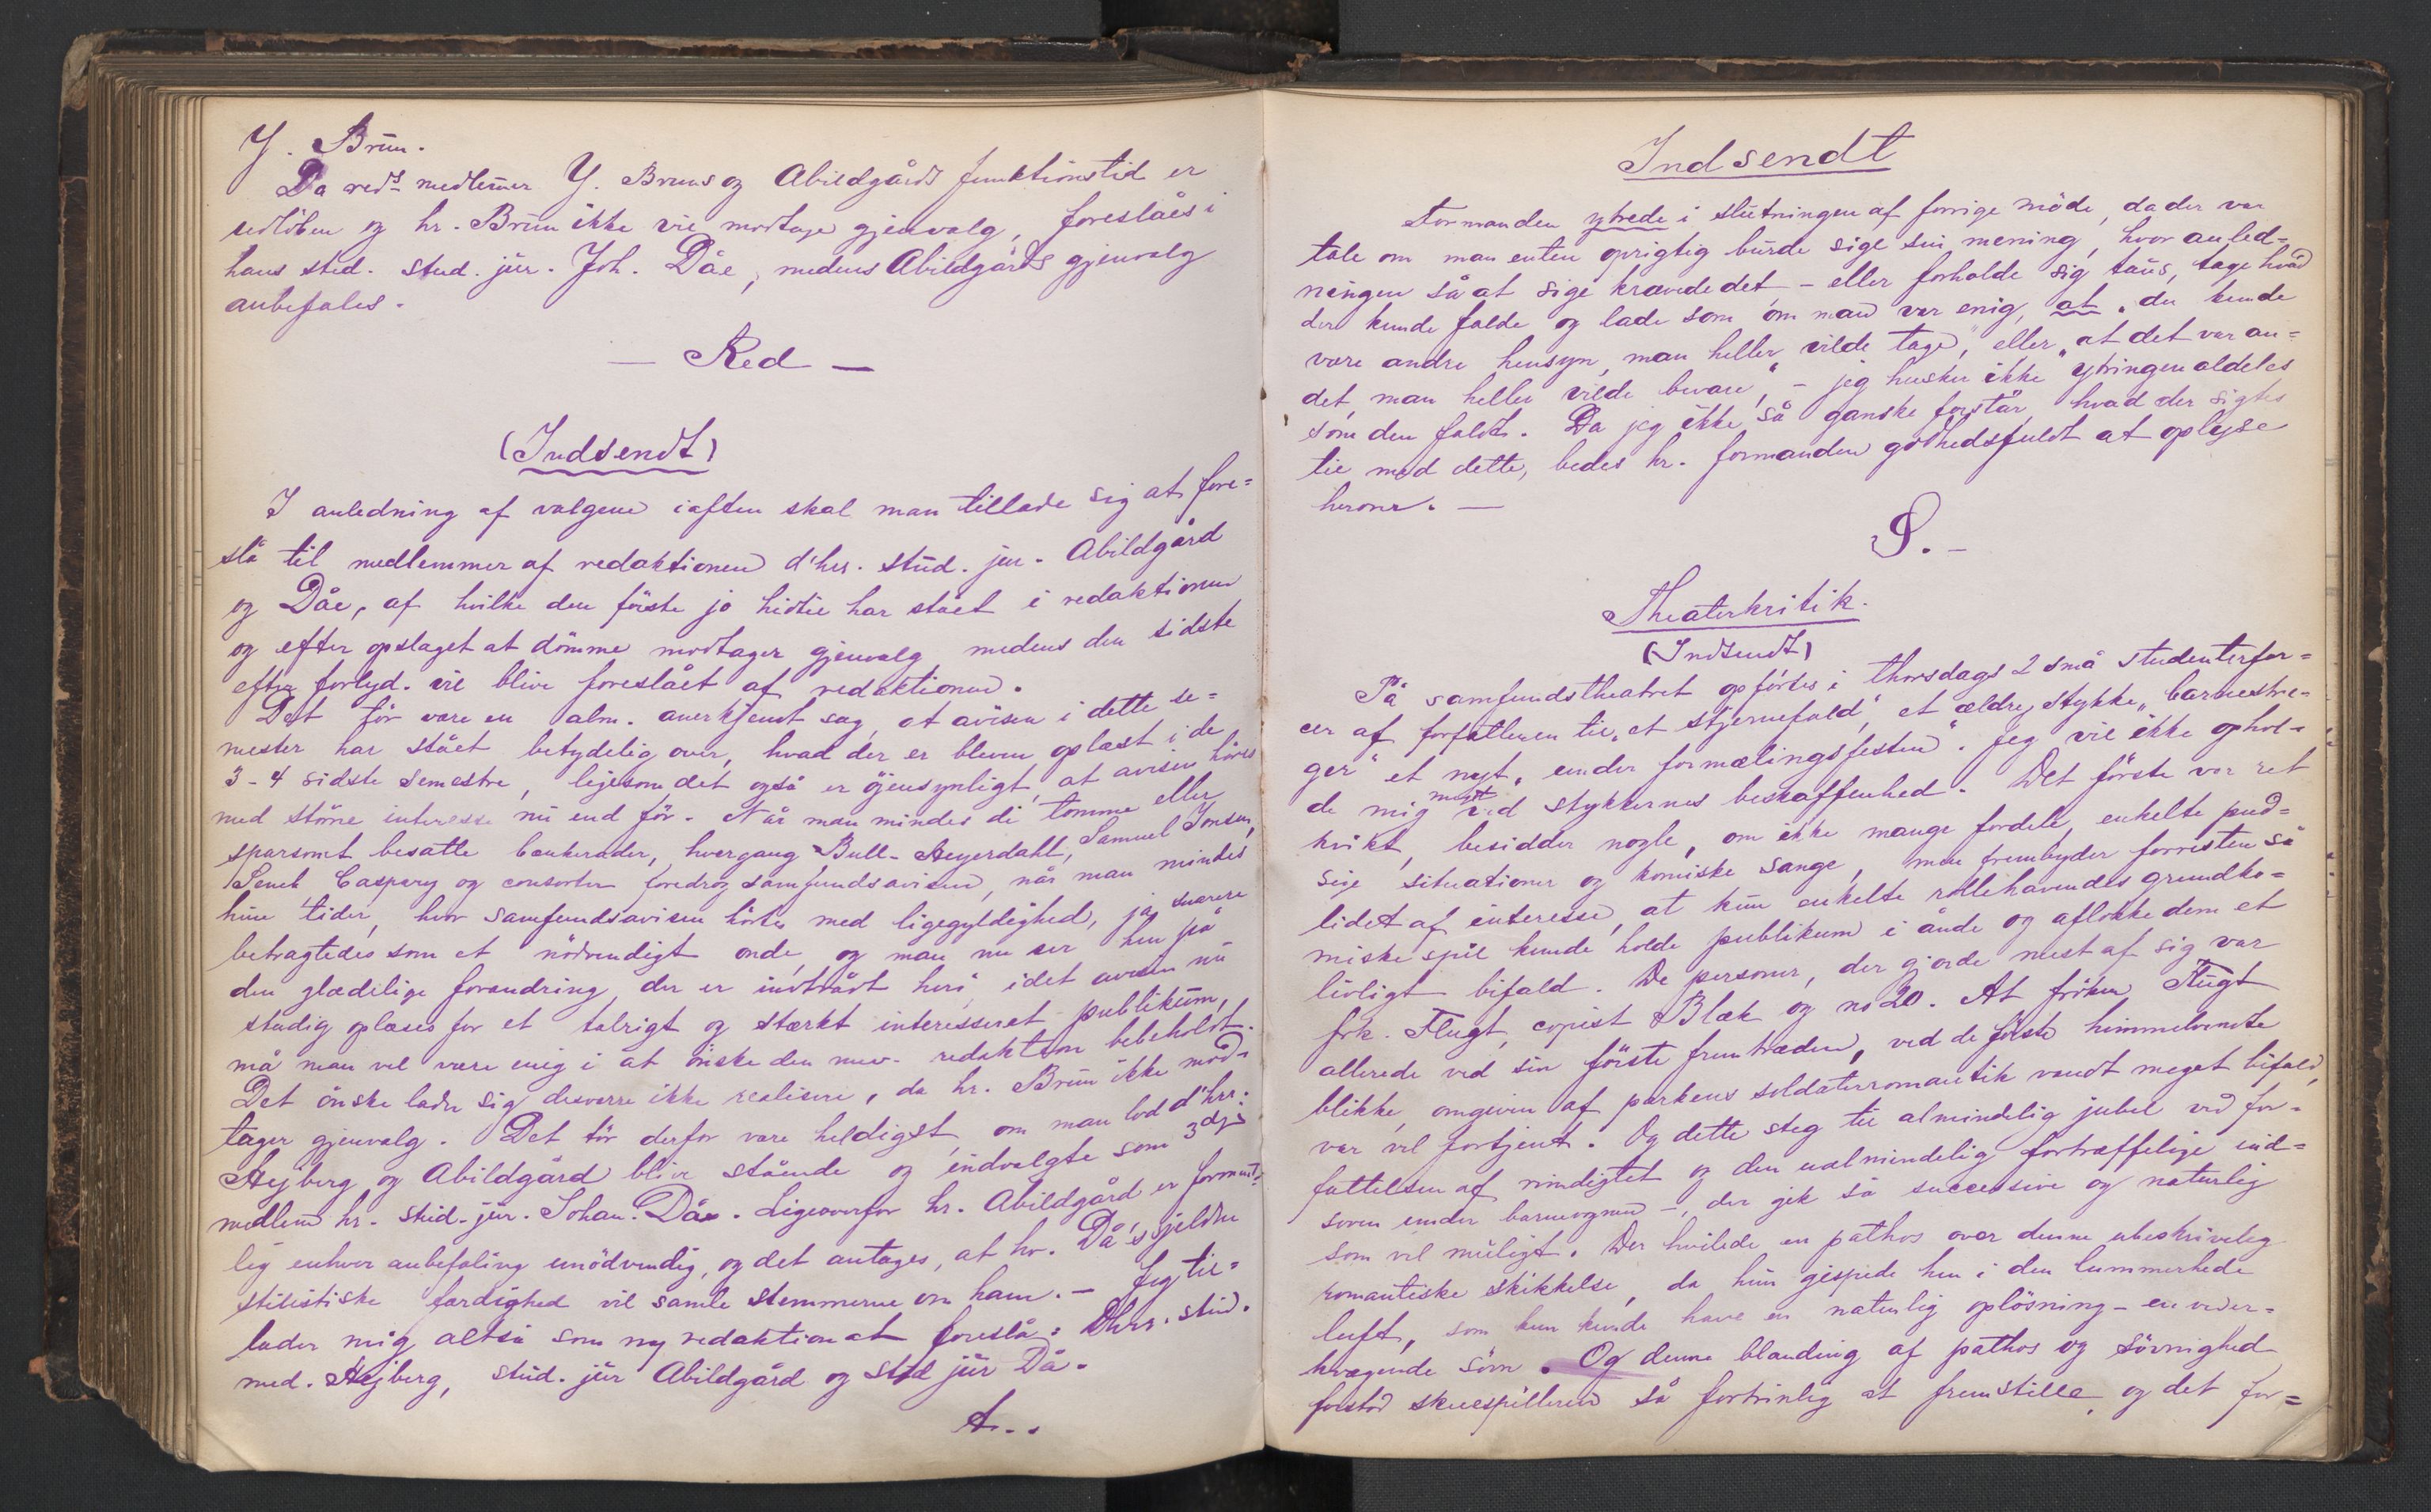 Y. Brun.
Da reds medlemmer Y. Bruns og Abildgårds funktionstid er
udløben og hr. Brun ikke vil modtage gjenvalg, foreslåes i
hans sted. stud. jur. Joh. Dåe, medens Abildgårds gjenvalg
anbefales.
— Red —
(Indsendt)
I anledning af valgene iaften skal man tillade sig at fore=
slå til medlemmer af redaktionen d'hrr. stud. jur. Abildgård
og Dåe, af hvilke den første jo hidtil har stået i redaktionen
og efter opslaget at dömme modtager gjenvalg medens den sidste
efter forlyd. vil blive foreslået af redaktionen.
Det tör være en alm. anerkjendt sag, at avisen i dette se=
mester har stået betydelig over, hvad der er bleven oplæst i de
3-4 sidste semestre, ligesom det også er öjensynligt, at avisen höres
med större interesse nu end för. Når man mindes de tomme eller
sparsomt besatte bænkerader, hvergang Bull-Heyerdahl, Samuel Jonsen,
Caspary og consorter foredrog samfundsavisen, når man mindes
hine tider, hvor samfundsavisen hörtes med ligegyldighed, ja snarere
betragtedes som et nödvendigt onde, og man nu ser hen på
den glædelige forandring, der er indtrådt heri, idet avisen nu
stadig oplæses for et talrigt og stærkt interesseret publikum,
må man vel være enig i at önske den nuv. redaktion beholdt.
Det önske lader sig desværre ikke realisere, da hr. Brun ikke mod=
tager gjenvalg. Det tör derfor være heldigst, om man lod d'hrr:
Hejberg og Abildgård blive stående og indvalgte som 3dje
medlem hr. stud. jur. Johan Dåe. Ligeoverfor hr. Abildgård er forment=
lig enhver anbefaling unödvendig, og det antages, at hr. Då's sjeldne
stilistiske færdighed vil samle stemmerne om ham. – Jeg til=
lader mig altså som ny redaktion at foreslå: Dhrr. stud.
med. Hejberg, stud. jur Abildgård og stud jur Då.
A..
Indsendt
Formanden ytrede i slutningen af forrige möde, da der var
tale om man enten oprigtig burde sige sin mening, hvor anled=
ningen så at sige krævede det – eller forholde sig taus, tage hvad
der kunde falde og lade som om man var enig, at „der kunde
være andre hensyn, man heller vilde tage", eller „at det var an=
det, man heller vilde bevare", – jeg husker ikke ytringen aldeles
som den faldt. Da jeg ikke så ganske forstår, hvad der sigtes
til med dette, bedes hr. formanden godhedsfuldt at oplyse
herom. —
S. –
Theaterkritik.
(Indsendt)
På samfundstheatret opförtes i thorsdags 2 små studenterfar=
cer af forfatteren til „et stjernefald", et ældre stykke „barnestre=
ger" et nyt „under formælingsfesten". Jeg vil ikke ophol=
de mig meget ved stykkernes beskaffenhed. Det förste var ret
kvikt, besidder nogle, om ikke mange fordele, enkelte pud=
sige situationer og komiske sange, men frembyder forresten så
lidet af interesse, at kun enkelte rollehavendes grundko=
miske spil kunde holde publikum i ånde og aflokke dem et
livligt bifald. De personer, der gjorde mest af sig var
frk. Flugt, copist Blæk og no 20. At fröken Flugt
allerede ved sin förste fremtræden, ved de förste himmelvendte
blikke, omgiven af parkens soldaterromantik vandt meget bifald,
var vel fortjent. Og dette steg til almindelig jubel ved for=
fattelsen af mindigtet og den ualmindelig fortræffelige ind=
soven under barnevognen –, der gik så successive og naturlig
som vel muligt. Der hvilede en pathos over denne ubeskrivelig
romantiske skikkelse, da hun gispede hen i den lummerhede
luft, som kun kunde have en naturlig oplösning – en veder=
kvægende sövn. Og denne blanding af pathos og sövnighed
forstod skuespilleren så fortrinlig at fremstille, og det for=